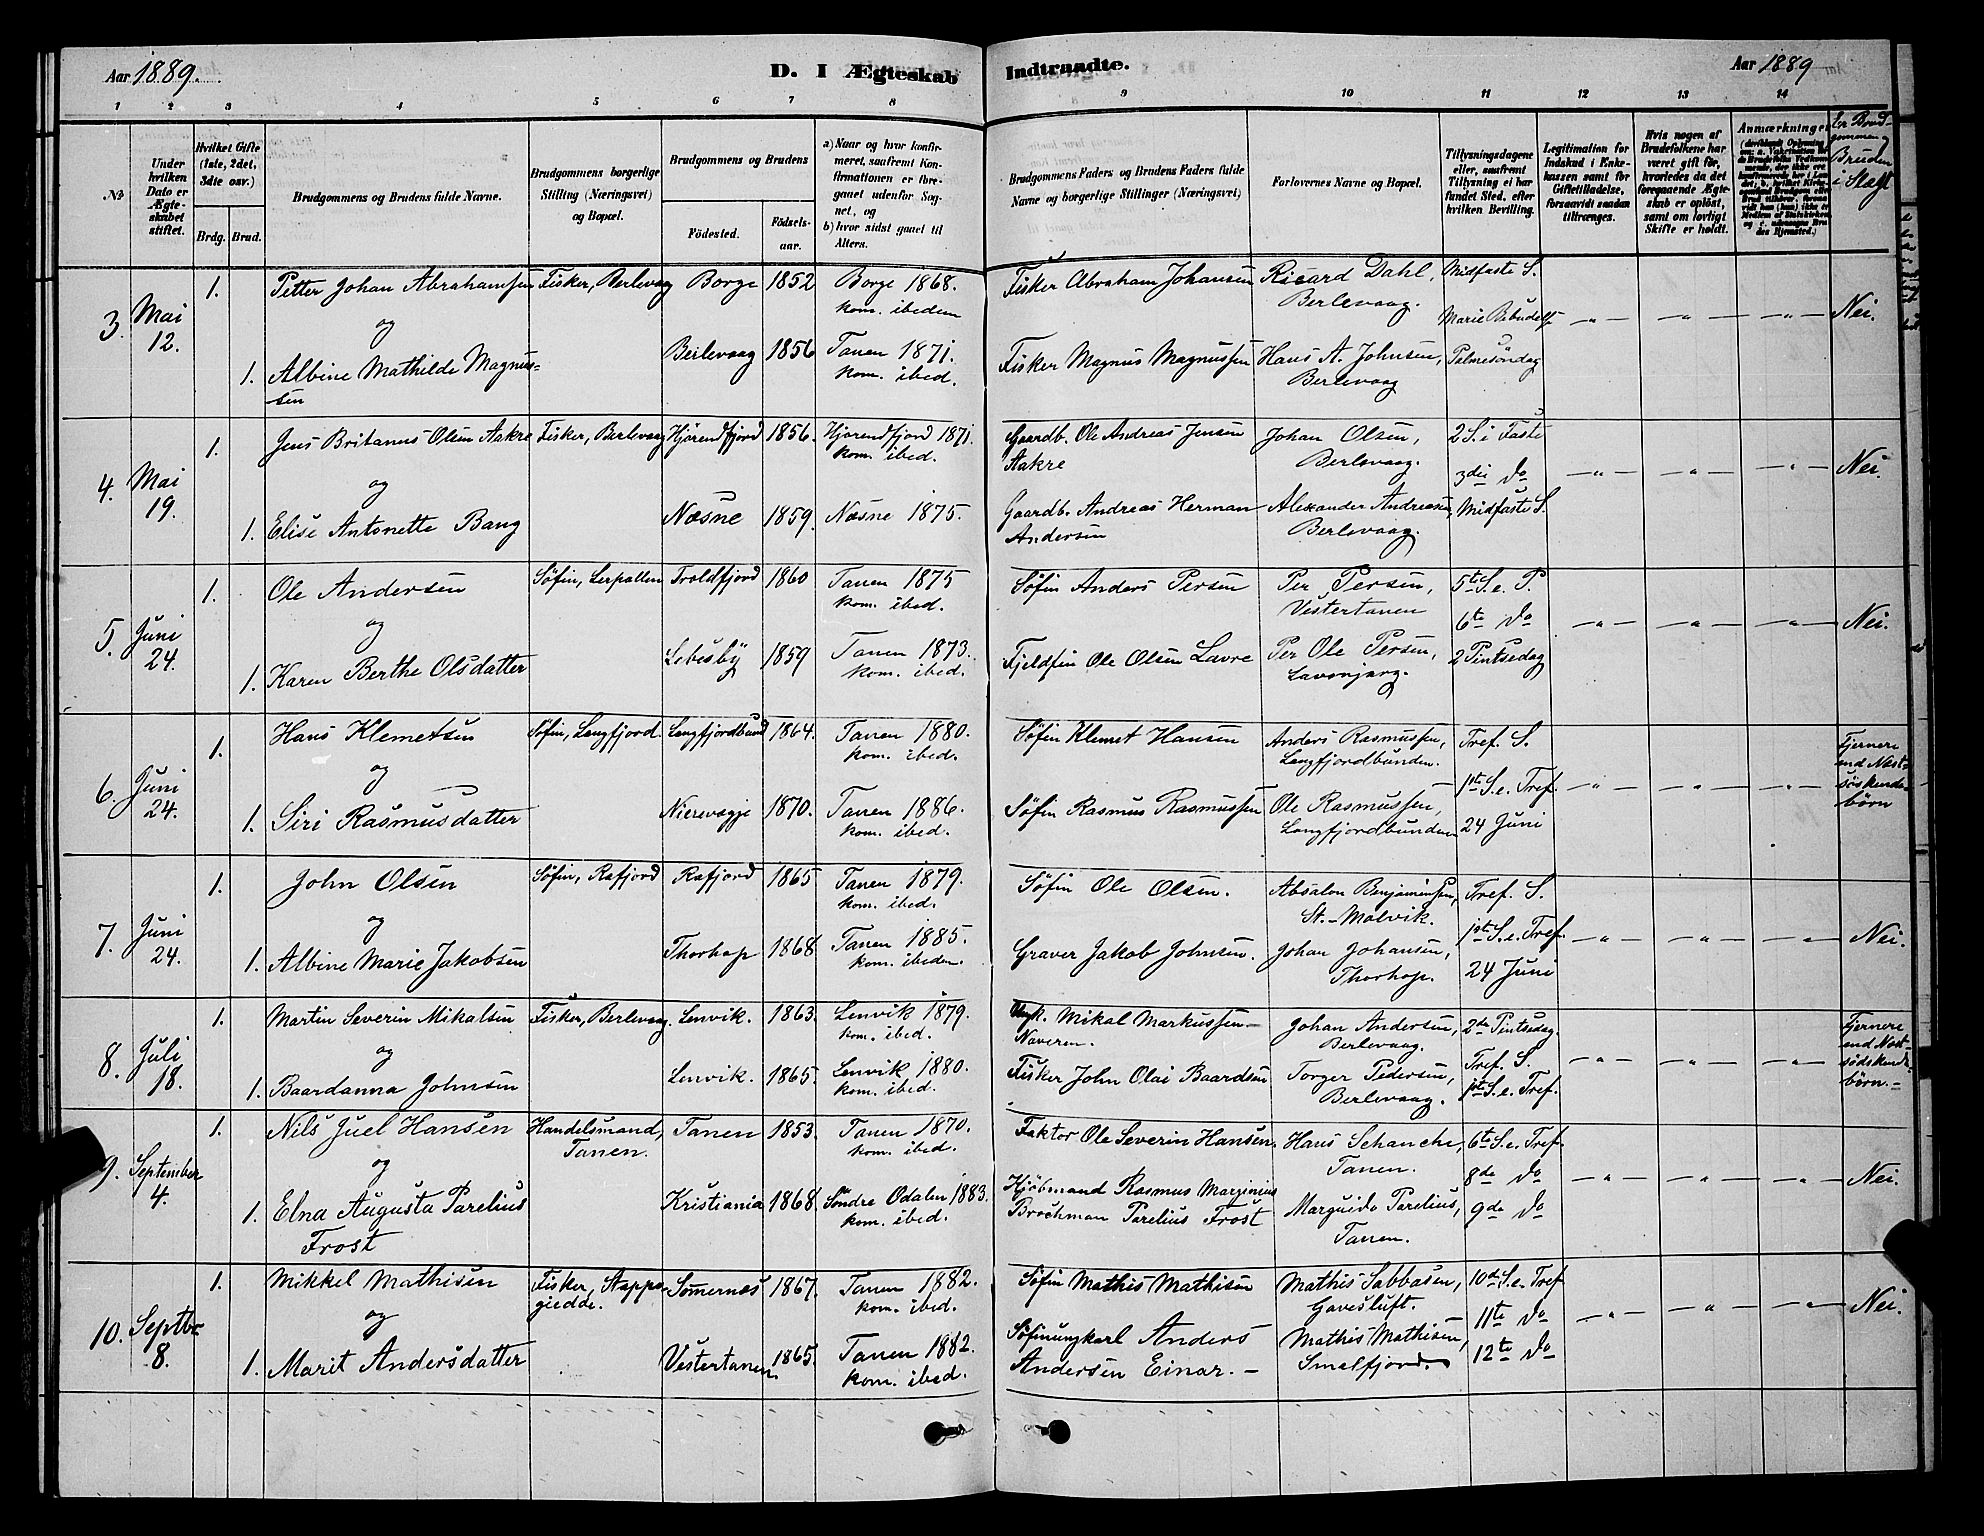 Aar 1889.
D. I Ægteskab Indtraadte.
Aar 1889
1 2 3 4 5 6 7 8 9 10 11 12 13 14
№
Under hvilken Dato er Ægteskabet stiftet.
Hvilket Gifte (1ste, 2det, 3die osv.)
Brdg. Brud.
Brudgommens og Brudens fulde Navne.
Brudgommens borgerlige Stilling (Næringsvei) og Bopæl.
Brudgommens og Brudens
Fødested.
Fødselsaar.
a) Naar og hvor konfirmeret, saafremt Konfirmationen er foregaaet udenfor Sognet, og
b) hvor sidst gaaet til Alters.
Brudgommens Faders og Brudens Faders fulde Navne og borgerlige Stillinger (Næringsvei)
Forlovernes Navne og Bopæl.
Tillysningsdagene eller, saafremt Tillysning ei har fundet Sted, efter hvilken Bevilling.
Legitimation for Indskud i Enkekassen samt for Giftetilladelse, forsaavidt saadan tiltrænges.
Hvis nogen af Brudefolkene har været gift før, hvorledes da det foregaaende Ægteskab er opløst, samt om lovligt Skifte er holdt.
Anmærkninger
Er Brudgommen og Bruden i Slægt
3. Mai 12. 1. Petter Johan Abrahamsen Fisker, Berlevaag Borge 1852 Borge 1868. kom. ibedem Fisker Abraham Johansen Ricard Dahl, Berlevaag. Midfaste S. — „ — — „ — — „ — Nei.
og
Marie Bebudelse
1. Albine Mathilde Magnussen Berlevaag 1856 Tanen 1871. kom. ibed. Fisker Magnus Magnussen Hans A. Johnsen, Berlevaag Palmesöndag
4. Mai 19. 1. Jens Britanus Olsen Aakre Fisker, Berlevaag Hjörendfjord 1856. Hjorendfjord 1871. kom. ibed. Gaardb. Ole Andreas Jensen Aakre Johan Olsen, Berlevaag. 2 S. i Faste — „ — — „ — — „ — Nei.
og
3die do
1. Elise Antonette Bang Næsne 1859. Næsne 1875. Gaardb. Andreas Herman Andersen Alexander Andreasen, Berlevaag. Midfaste S.
5. Juni 24. 1. Ole Andersen Söfin, Lerpollen Troldfjord 1860 Tanen 1875 kom. ibed. Söfin Anders Persen Per Persen, Vestertanen 5te S. e. P. — „ — — „ — — „ — Nei.
og
6te do
1. Karen Berthe Olsdatter Lebesby 1859 Tanen 1873. kom. ibed. Fjeldfin Ole Olsen Lavre Per Ole Persen, Lavonjarg. 2 Pintsedag
6. Juni 24. 1. Hans Klemetsen Söfin, Langfjord. Langfjordbund 1864. Tanen 1880. kom. ibed. Söfin Klemet Hansen Anders Rasmussen, Langfjordbunden. Tref. S. — „ — — „ — — „ — Fjernere end Næstsöskendebörn
og
1ste S. e. Tref.
1. Siri Rasmusdatter Nierevagje 1870. Tanen 1886. kom. ibed. Söfin Rasmus Rasmussen Ole Rasmussen, Langfjordbunden 24 Juni
7. Juni 24. 1. John Olsen Söfin, Rafjord Rafjord 1865 Tanen 1879. kom. ibed. Söfin Ole Olsen. Absalon Benjaminsen, St.-Molvik. Tref. S. — „ — — „ — — „ — Nei.
og
1ste S. e. Tref.
1. Albine Marie Jakobsen Thorhop 1868 Tanen 1885. kom. ibedem. Graver Jakob Johnsen. Johan Johansen, Thorhop. 24 Juni
8. Juli 18. 1. Martin Severin Mikalsen Fisker, Berlevaag. Lenvik. 1863. Lenvik 1879. kom. ibed. Mikal Markussen Naveren. Johan Andersen, Berlevaag. 2den Pintsedag. — „ — — „ — — „ — Fjernere end Næstsödskendebörn.
og
Tref. S.
1. Baardanna Johnsen Lenvik. 1865. Lenvik 1880. kom. ibed. Fisker John Olai Baardsen Torger Pedersen, Berlevaag. 1ste S. e. Tref.
9. September 4. 1. Nils Juel Hansen Handelsmand, Tanen. Tanen 1853. Tanen 1870. kom. ibed. Faktor Ole Severin Hansen. Hans Schanche, Tanen. 6te S. e. Tref. — „ — — „ — — „ — Nei.
og
8de do
1. Elna Augusta Parelius Frost Kristiania 1868. Söndre Odalen 1883. kom. ibed. Kjöbmand Rasmus Marjinius Brochman Parelius Frost Marguido Parelius, Tanen. 9de do
10. Septbr 8. 1. Mikkel Mathisen Fisker, Stappogiedde. Somernæs 1867. Tanen 1882. kom. ibed. Söfin Mathis Mathisen Mathis Sabbasen, Gavesluft. 10de S. e. Tref — „ — — „ — — „ — Nei.
og
11te do
1. Marit Andersdatter Vestertanen. 1865. Tanen 1882. kom. ibed. Söfinungkarl Anders Andersen Einar. — Mathis Mathisen, Smalfjord. 12te do